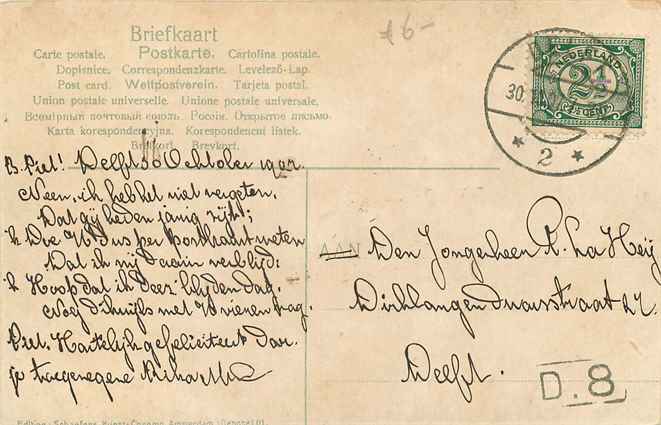 £6-
Briefkaart
Carte postale. Postkarte. Cartolina postale.
Dopisnice. Correspondenzkarte. Levelező-Lap.
Post card. Weltpostverein. Tarjeta postal.
Union postale universelle. Unione postale universale.
Всемірный почтовый союзъ. Россія. Открытое письмо.
Karta korespondencyjna. Korespondenční lístek.
Brefkort. Brevkort.
NEDERLAND
2½
CENT
30
2
B. Piet! Delft 30 October 1907.
Neen, ik heb het niet vergeten,
Dat gij heden jarig zijt!;
'k Doe U dus per Postkaart weten
Dat ik mij daarin verblijd:
'k Hoop dat ik deez' blijden dag,
Nog dikwijls met U vieren mag.
Piet. Hartelijk gefeliciteerd door
je toegenegene
AAN Den Jongenheer P. La Heij
Dirklangendwarsstraat 22.
Delft.
D.8
Amsterdam